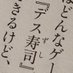 はどんなゲー
『デス寿司』
できるけど、